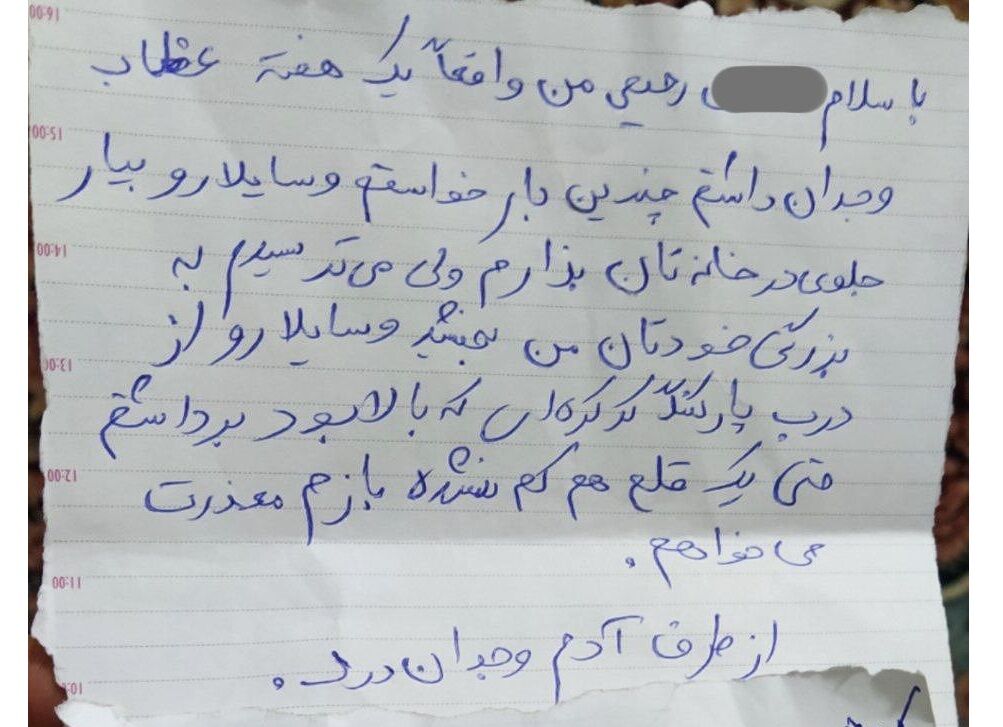 با سلام رحیمی من واقعاً یک هفته عظاب
وجدان داشتم چندین بار خواستم وسایلارو بیار
جلوی در خانه تان بذارم ولی می ترسیدم به
بزرگی خودتان من بخشید وسایلا رو از
درب پارکنگ کرکره ای که بالا بود برداشتم
حتی یک قلم هم کم نشده بازم معذرت
می خواهم.
از طرف آدم وجدان درد.
16:00
15:00
14:00
13:00
12:00
11:00